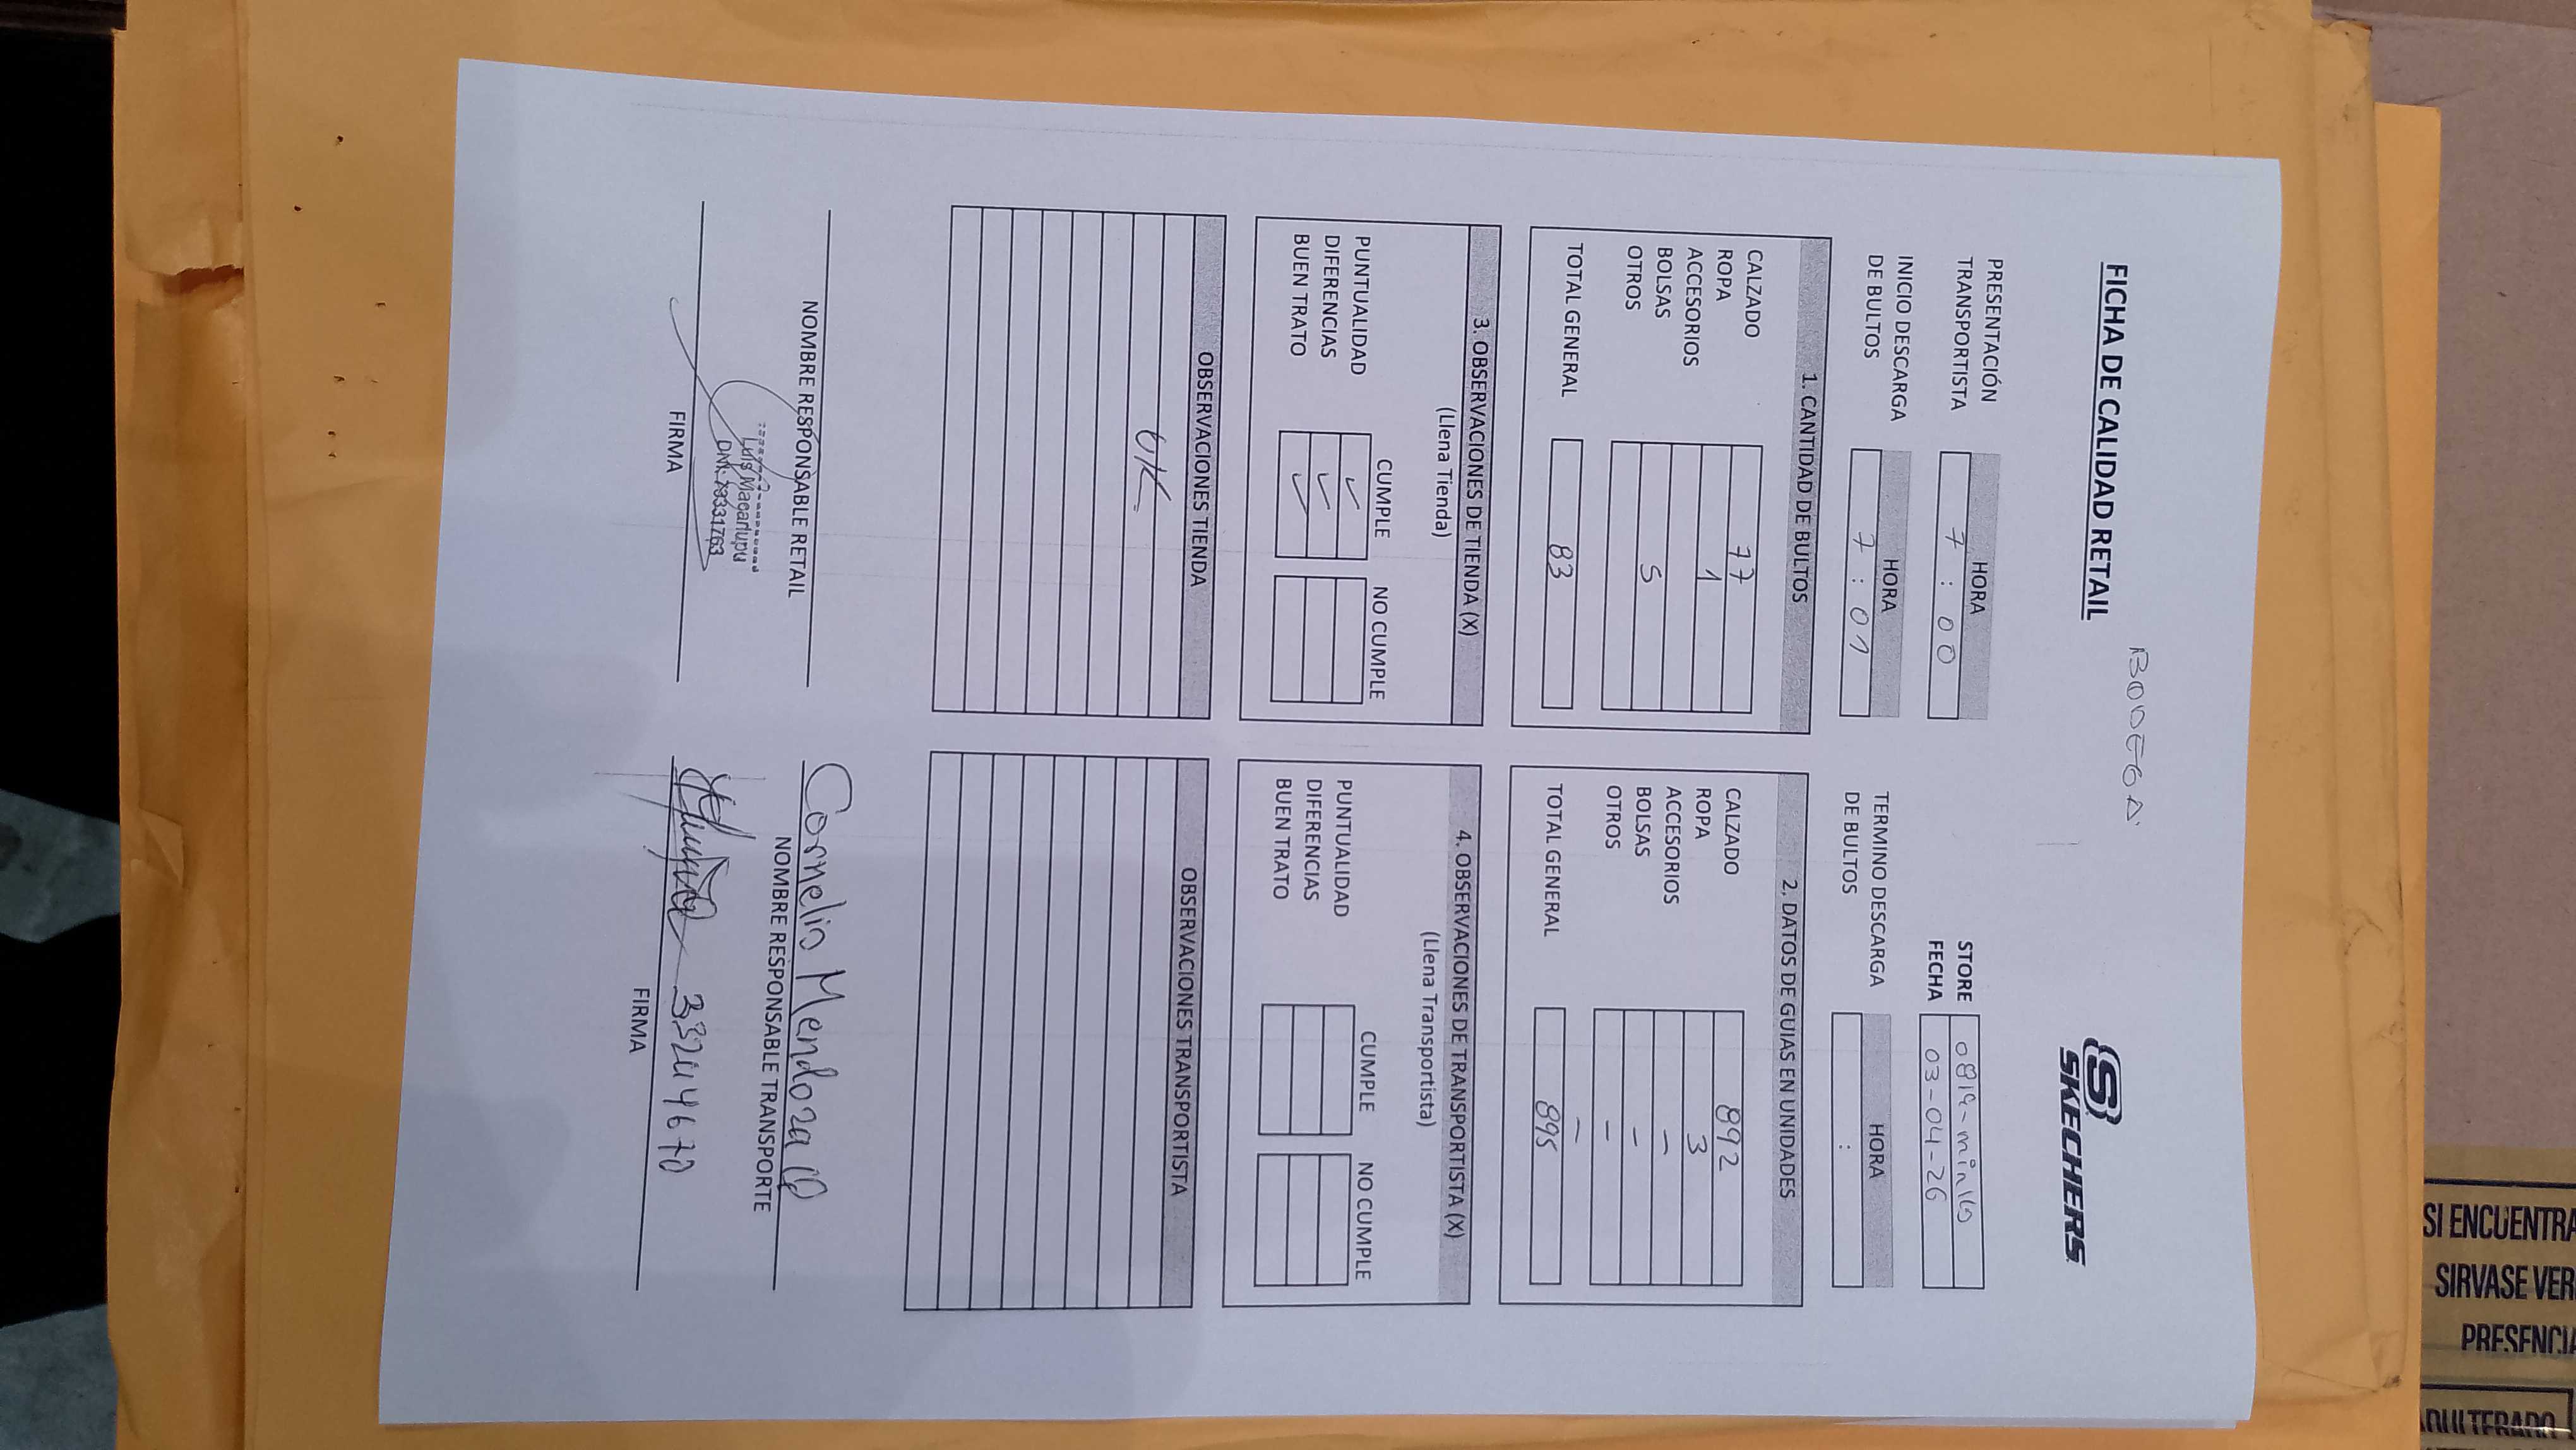 BODEGA
FICHA DE CALIDAD RETAIL
SKECHERS
STORE 0819-minka
FECHA 03-04-26
HORA
PRESENTACIÓN
TRANSPORTISTA 7 : 00
HORA
INICIO DESCARGA
DE BULTOS 7 : 01
HORA
TERMINO DESCARGA
DE BULTOS :
1. CANTIDAD DE BULTOS
CALZADO 77
ROPA 1
ACCESORIOS
BOLSAS 5
OTROS
TOTAL GENERAL 83
2. DATOS DE GUIAS EN UNIDADES
CALZADO 892
ROPA 3
ACCESORIOS -
BOLSAS -
OTROS -
-
TOTAL GENERAL 895
3. OBSERVACIONES DE TIENDA (X)
(Llena Tienda)
CUMPLE NO CUMPLE
PUNTUALIDAD ✓
DIFERENCIAS ✓
BUEN TRATO ✓
4. OBSERVACIONES DE TRANSPORTISTA (X)
(Llena Transportista)
CUMPLE NO CUMPLE
PUNTUALIDAD
DIFERENCIAS
BUEN TRATO
OBSERVACIONES TIENDA
OK
OBSERVACIONES TRANSPORTISTA
NOMBRE RESPONSABLE RETAIL
Luis Macarlupu
DNI:
FIRMA
Cornelio Mendoza Q
NOMBRE RESPONSABLE TRANSPORTE
33244670
FIRMA
SI ENCUENTRA
SIRVASE VER
PRESENCIA
ADULTERADO